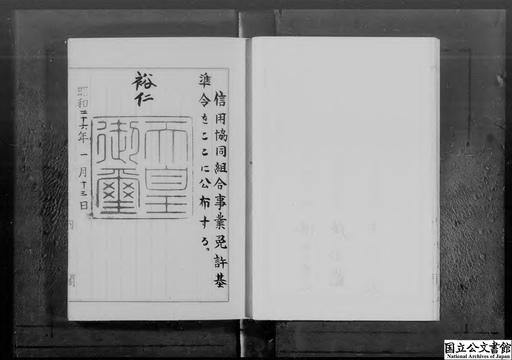 信用協同組合事業免許基
準令をここに公布する。
裕仁
天皇
御璽
昭和二十六年一月十三日
内閣
国立公文書館
National Archives of Japan